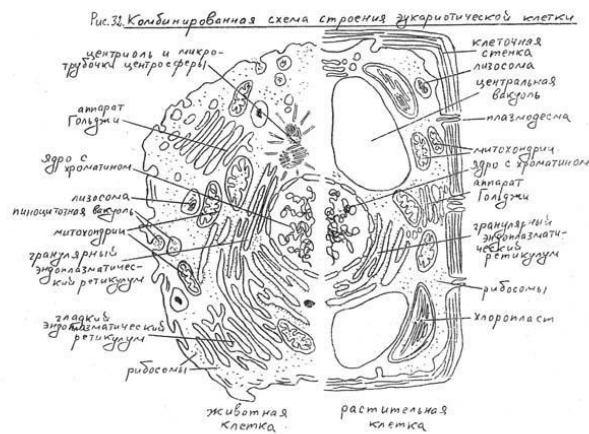 Рис.32. Комбинированная схема строения эукариотической клетки
центриоль и микро-
трубочки центросферы
аппарат
Гольджи
ядро с
хроматином
лизосома
пиноцитозная вакуоль
митохондрии
гранулярный
эндоплазматичес-
кий ретикулум
гладкий
эндоплазматический
ретикулум
рибосомы
животная
клетка
клеточная
стенка
лизосома
центральная
вакуоль
плазмодесма
митохондрии
ядро с хроматином
аппарат
Гольджи
гранулярный
эндоплазмати-
ческий
ретикулум
рибосомы
хлоропласт
растительная
клетка